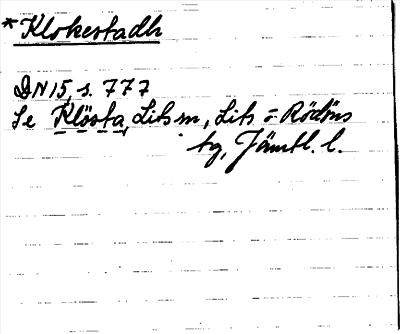 *Klokerstadh
DN 15, s. 777
Se Klösta, Lits sn, Lits = Rödöns
tg, Jämtl. l.